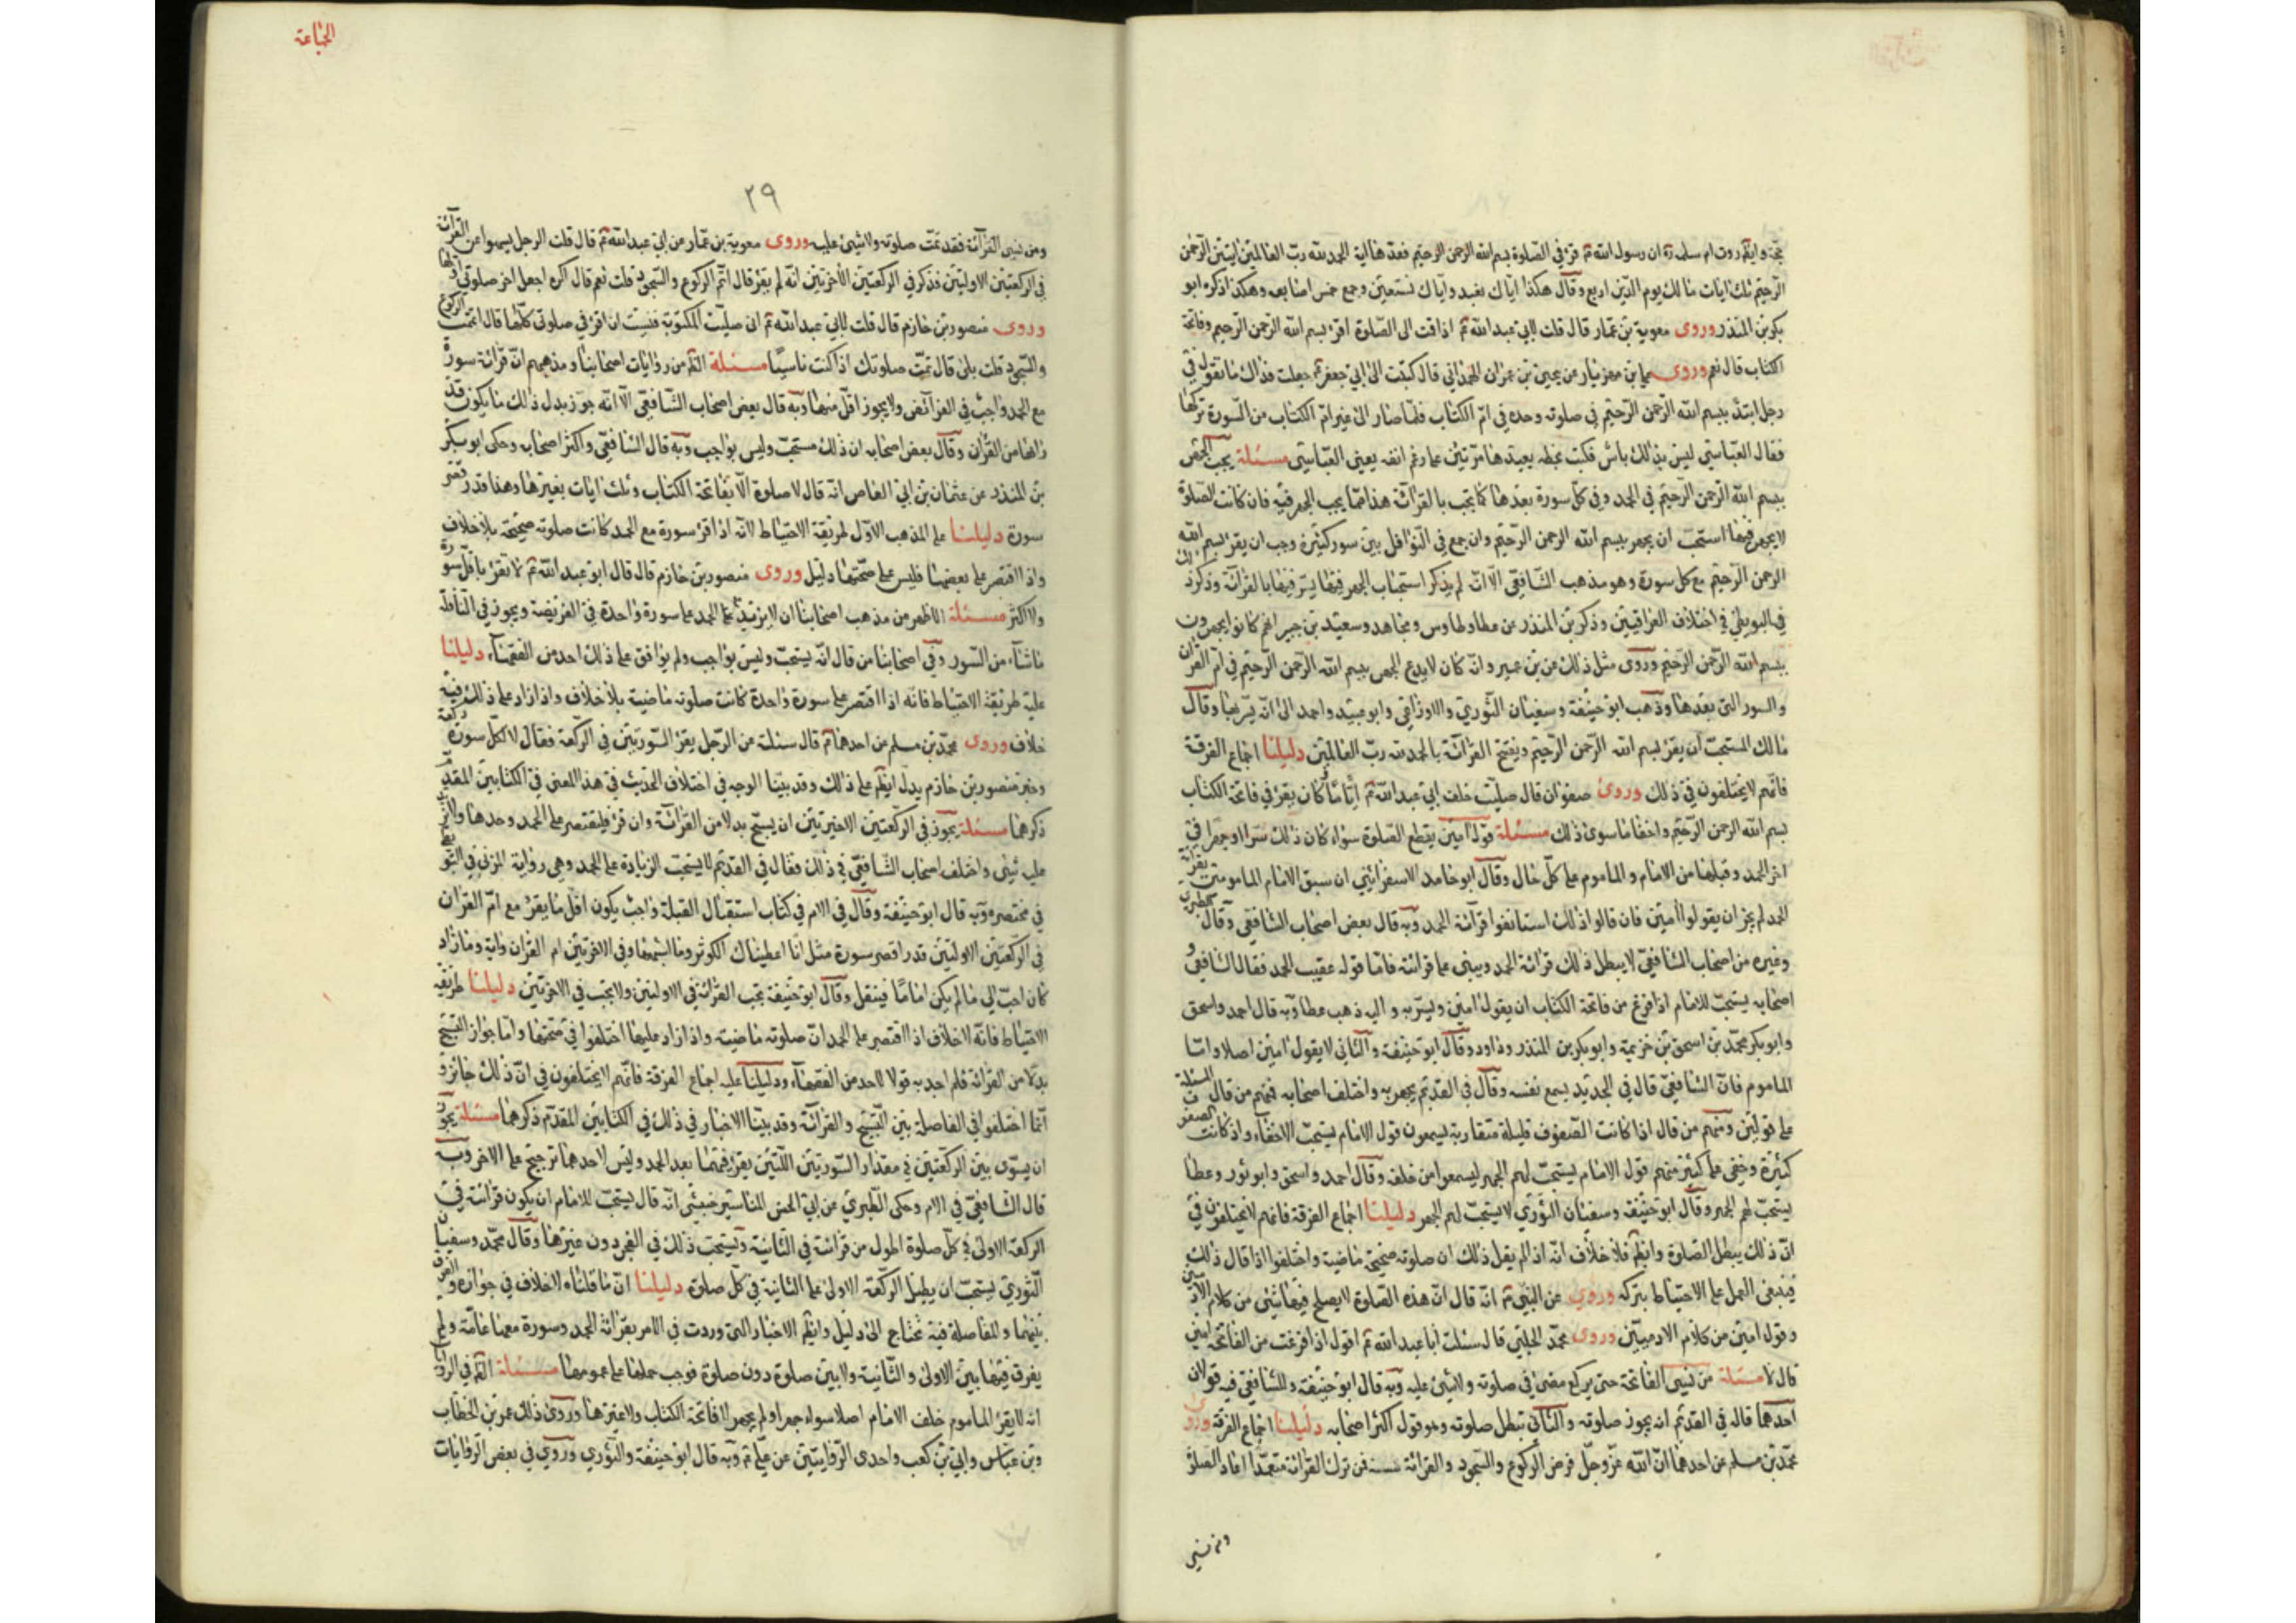 حجة وايضا روت ام سلمة ره ان رسول الله ص قرء في الصلوة بسم الله الرحمن الرحيم فعدها اية الحمد لله رب العالمين ايتين الرحمن
الرحيم ثلث ايات مالك يوم الدين اربع وقال هكذا اياك نعبد واياك نستعين وجمع خمس اصابعه وهكذا ذكره ابو
بكر بن المنذر وروى معوية بن عمار قال قلت لابي عبدالله ع اذا قمت الى الصلوة اقرء بسم الله الرحمن الرحيم وفاتحة
الكتاب قال نعم وروى علي بن مهزيار عن يحيى بن عمران الهمداني قال كتبت الى ابي جعفر ع جعلت فداك ما تقول في
رجل ابتدء ببسم الله الرحمن الرحيم في صلوته وحده في ام الكتاب فلما صار الى غير ام الكتاب من السورة تركها
فقال العباسي ليس بذلك باس فكتب بخطه يعيدها مرتين على رغم انفه يعني العباسي مسئلة يجب الجهر
ببسم الله الرحمن الرحيم في الحمد وفي كل سورة بعدها كما يجب بالقرائة هذا فيما يجب الجهر فيه فان كانت الصلوة
لا يجهر فيها استحب ان يجهر ببسم الله الرحمن الرحيم وان جمع في النوافل بين سور كثيرة وجب ان يقرء بسم الله
الرحمن الرحيم مع كل سورة وهو مذهب الشافعي الا انه لم يذكر استحباب الجهر فيما يسر فيها بالقرائة وذكر ذلك
في البويطي في اختلاف العراقيين وذكر بن المنذر عن عطا وطاوس ومجاهد وسعيد بن جبير انهم كانوا يجهرون
ببسم الله الرحمن الرحيم وروى مثل ذلك عن بن عمير وانه كان لا يدع الجهر ببسم الله الرحمن الرحيم في ام القران
والسور التي بعدها وذهب ابو حنيفة وسفيان الثوري والاوزاعي وابو عبيد واحمد الى انه يسر بها وقال
مالك المستحب ان يقرء بسم الله الرحمن الرحيم ويفتتح القرائة بالحمد لله رب العالمين دليلنا اجماع الفرقة
فانهم لا يختلفون في ذلك وروى صفوان قال صليت خلف ابي عبدالله ع اياما كان يقرء في فاتحة الكتاب
بسم الله الرحمن الرحيم واخفا ما سوى ذلك مسئلة قول امين يقطع الصلوة سواء كان ذلك سرا او جهرا في
اخر الحمد وقبلها من الامام والماموم على كل حال وقال ابو حامد الاسفرائيني ان سبق الامام المامومين بقرائة
الحمد لم يجز ان يقولوا امين فان قالوا ذلك استانفوا قرائة الحمد وبه قال بعض اصحاب الشافعي وقال الطبري
وغيره من اصحاب الشافعي لا يبطل ذلك قرائة الحمد ويبنى على قرائته فاما قوله عقيب الحمد فقال الشافعي و
اصحابه يستحب للامام اذا فرغ من فاتحة الكتاب ان يقول امين ويسر به واليه ذهب عطا وبه قال احمد واسحق
وابو بكر محمد بن اسحق بن خزيمة وابو بكر بن المنذر وداود وقال ابو حنيفة والثاني لا يقول امين اصلا واما
الماموم فان الشافعي قال في الجديد يسمع نفسه وقال في القديم يجهر به واختلف اصحابه فمنهم من قال المسئلة
على قولين ومنهم من قال اذا كانت الصفوف قليلة متقاربة يسمعون قول الامام يستحب الاخفاء واذا كانت الصفوف
كثيرة وخفي على كثير منهم قول الامام يستحب لهم الجهر ليسمعوا من خلفه وقال احمد واسحق وابو ثور وعطا
يستحب لهم الجهر وقال ابو حنيفة وسفيان الثوري لا يستحب لهم الجهر دليلنا اجماع الفرقة فانهم لا يختلفون في
ان ذلك يبطل الصلوة وايضا فلا خلاف انه اذا لم يقل ذلك ان صلوته صحيحة ماضية واختلفوا اذا قال ذلك
فينبغى العمل على الاحتياط بتركه وروي عن النبي ص انه قال ان هذه الصلوة لا يصلح فيها شئ من كلام الادميين
وقول امين من كلام الادميين وروى محمد الحلبي قال سئلت ابا عبدالله ع اقول اذا فرغت من الفاتحة امين
قال لا مسئلة من نسى الفاتحة حتى يركع مضى في صلوته ولا شئ عليه وبه قال ابو حنيفة وللشافعي فيه قولان
احدهما قاله في القديم انه يجوز صلوته والثاني تبطل صلوته وهو قول اكثر اصحابه دليلنا اجماع الفرقة وروى
محمد بن مسلم عن احدهما ان الله عز وجل فرض الركوع والسجود والقرائة سنة فمن ترك القرائة متعمدا اعاد الصلوة
ومن نسي
الجماعة
٢٩
ومن نسي القرائة فقد تمت صلوته ولا شئ عليه وروى معوية بن عمار عن ابي عبدالله ع قال قلت الرجل يسهوا عن القرائة
في الركعتين الاولتين فذكر في الركعتين الاخرتين انه لم يقرء قال اتم الركوع والسجود قلت نعم قال اكره اجعل اخر صلوتي اولها
وروى منصور بن حازم قال قلت لابي عبدالله ع اني صليت المكتوبة فنسيت ان اقرء في صلوتي كلها قال اتممت الركوع
والسجود قلت بلى قال تمت صلوتك اذا كنت ناسيا مسئلة الظ من روايات اصحابنا ومذهبهم ان قرائة سورة
مع الحمد واجب في الفرائض ولا يجوز اقل منها وبه قال بعض اصحاب الشافعي الا انه جوز بدل ذلك ما يكون قدر
ايها من القران وقال بعض اصحابه ان ذلك مستحب وليس بواجب وبه قال الشافعي واكثر اصحابه وحكى ابو بكر
بن المنذر عن عثمان بن ابي العاص انه قال لا صلوة الا بفاتحة الكتاب وثلث ايات بغيرها وهذا قدر اقصر
سورة دليلنا على المذهب الاول طريقة الاحتياط لانه اذا قرء سورة مع الحمد كانت صلوته صحيحة بلا خلاف
واذا اقتصر على بعضها فليس على صحتها دليل وروى منصور بن حازم قال قال ابو عبدالله ع لا تقرء باقل سورة
ولا اكثر مسئلة الاظهر من مذهب اصحابنا ان لا يزيد على الحمد على سورة واحدة في الفريضة ويجوز في النافلة
ما شاء من السور وفي اصحابنا من قال انه يستحب وليس بواجب ولم يوافق على ذلك احد من الفقهاء دليلنا
عليه طريقة الاحتياط فانه اذا اقتصر على سورة واحدة كانت صلوته ماضية بلا خلاف واذا زاد على ذلك فيه
خلاف وروى محمد بن مسلم عن احدهما ع قال سئلته عن الرجل يقرء السورتين في الركعة فقال لا لكل سورة ركعة
وخبر منصور بن حازم يدل ايضا على ذلك وقد بينا الوجه في اختلاف الحديث في هذا المعنى في الكتابين المقدم
ذكرهما مسئلة يجوز في الركعتين الاخيرتين ان يسبح بدلا من القرائة وان قرء فليقتصر على الحمد وحدها ولا يزيد
عليه شئى واختلف اصحاب الشافعي في ذلك فقال في القديم لا يستحب الزيادة على الحمد وهي رواية المزني في البويطي
في مختصره وبه قال ابو حنيفة وقال في الام في كتاب استقبال القبلة واجب يكون اقل ما يقرء مع ام القران
في الركعتين الاولتين قدر اقصر سورة مثل انا اعطيناك الكوثر وما اشبهها وفي الاخرتين ام القران واية وما زاد
كان احب الي ما لم يكن اماما فيثقل وقال ابو حنيفة تجب القرائة في الاولتين ولا تجب في الاخرتين دليلنا طريقة
الاحتياط فانه لا خلاف اذا اقتصر على الحمد ان صلوته ماضية واذا زاد عليها اختلفوا في صحتها واما جواز التسبيح
بدلا من القرائة فلم اجد به قولا لاحد من الفقهاء ودليلنا عليه اجماع الفرقة فانهم لا يختلفون في ان ذلك جائز و
انما اختلفوا في الفاصلة بين التسبيح والقرائة وقد بينا الاخبار في ذلك في الكتابين المقدم ذكرهما مسئلة يجوز
ان يسوى بين الركعتين في مقدار السورتين اللتين يقرء فيهما بعد الحمد وليس لاحدهما ترجيح على الاخر وبه
قال الشافعي في الام وحكى الطبري عن ابي الحسن انه قال يستحب للامام ان يكون قرائته في
الركعة الاولى في كل صلوة اطول من قرائته في الثانية ويستحب ذلك في الفجر دون غيرها وقال محمد وسفيان
الثوري يستحب ان يطيل الركعة الاولى على الثانية في كل صلوة دليلنا ان ما قلناه لا خلاف في جوازه والفرق
بينهما والمفاصلة فيه تحتاج الى دليل وايضا الاخبار التي وردت في الامر بقرائة الحمد وسورة معها عامة ولم
يفرق فيها بين الاولى والثانية ولا بين صلوة دون صلوة فوجب حملها على عمومها مسئلة الظ في الروايات
انه لا يقرء الماموم خلف الامام اصلا سواء جهر او لم يجهر لا فاتحة الكتاب ولا غيرها وروى ذلك عمر بن الخطاب
وبن عباس وابي بن كعب واحدى الروايتين عن علي ع وبه قال ابو حنيفة والثوري وروي في بعض الروايات